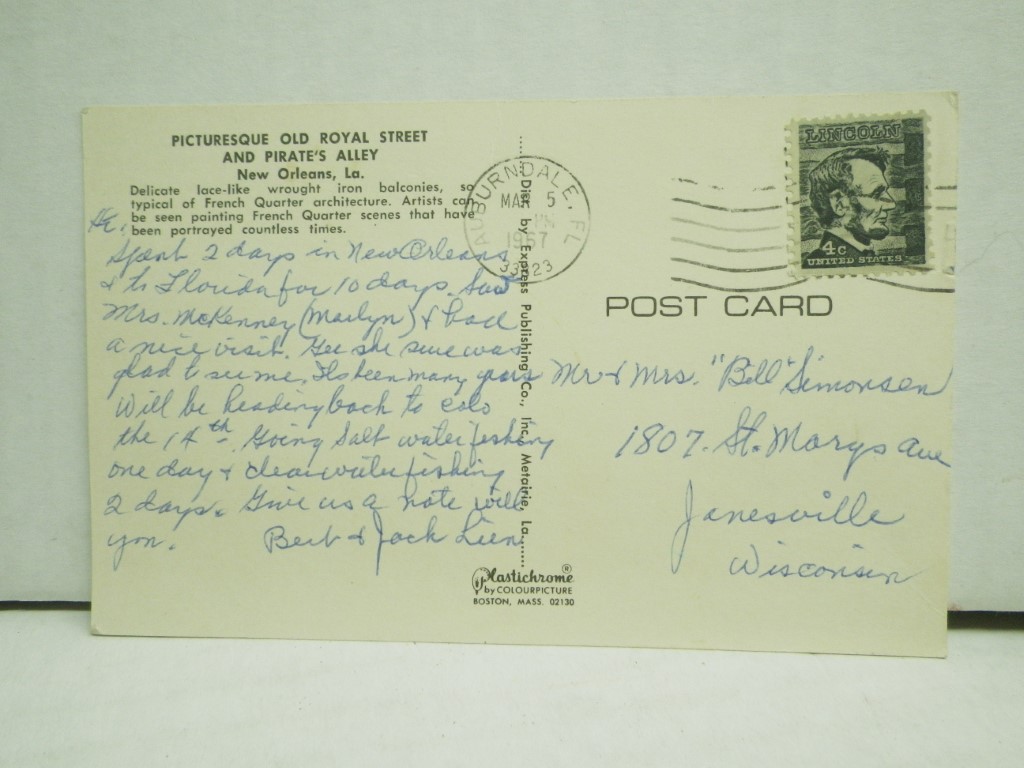 PICTURESQUE OLD ROYAL STREET
AND PIRATE'S ALLEY
New Orleans, La.
Delicate lace-like wrought iron balconies, so
typical of French Quarter architecture. Artists can
be seen painting French Quarter scenes that have
been portrayed countless times.
Hi,
Spent 2 days in New Orleans
& to Florida for 10 days. Saw
Mrs. McKenney (Marlyn) & had
a nice visit. Gee she sure was
glad to see me. Its been many years
Will be heading back to Colo
the 14th. Going Salt water fishing
one day & clear water fishing
2 days. Give us a note will
you. Bert & Jack Lien
Dist. by Express Publishing Co., Inc. Metairie, La.
Plastichrome ®
by COLOURPICTURE
BOSTON, MASS. 02130
AUBURNDALE, FL
MAR 5
1967
33823
LINCOLN
4c
UNITED STATES
POST CARD
Mr & Mrs. "Bill" Simonsen
1807. St. Marys Ave
Janesville
Wisconsin